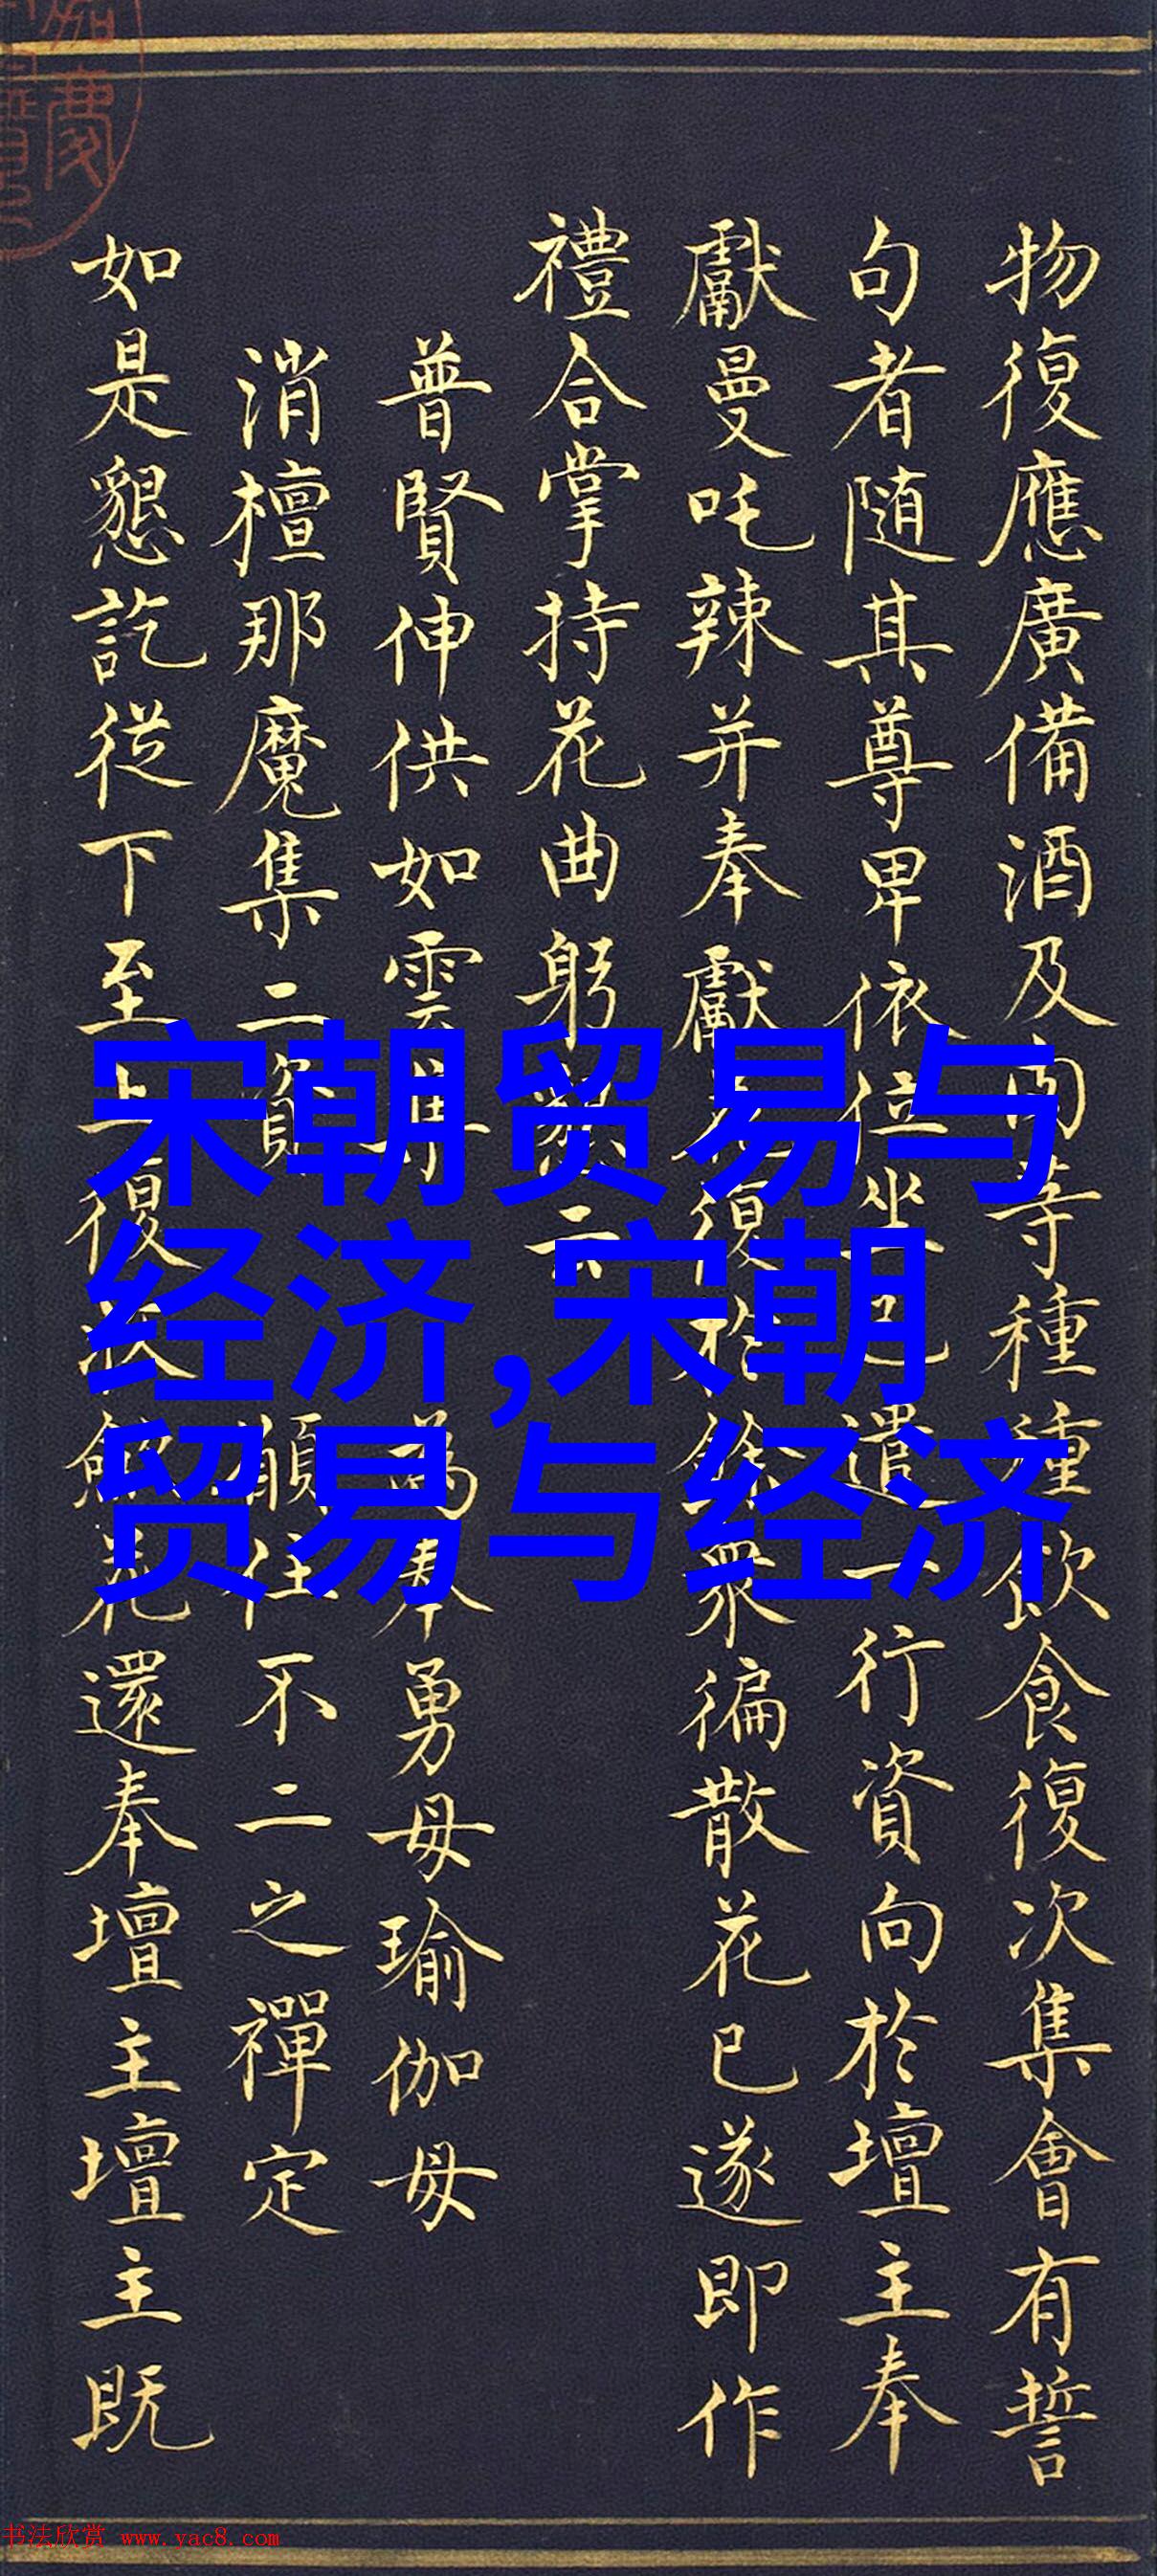 物復應廣備酒及肉等種種飲食復次集會有誓
句者随其尊卑依位坐已遣一行資向於壇主奉
獻曼吒辣并奉獻花復於餘眾徧散花已遂即作
禮合掌持花曲躬
普賢伸供如雲集 為奉勇母瑜伽母
消檀那魔集二資 願住不二之禪定
如是懇訖從下至上復次 花還奉壇主壇主既
宋朝贸易与
经济,宋朝
贸易与经济
书法欣赏 www.yac8.com